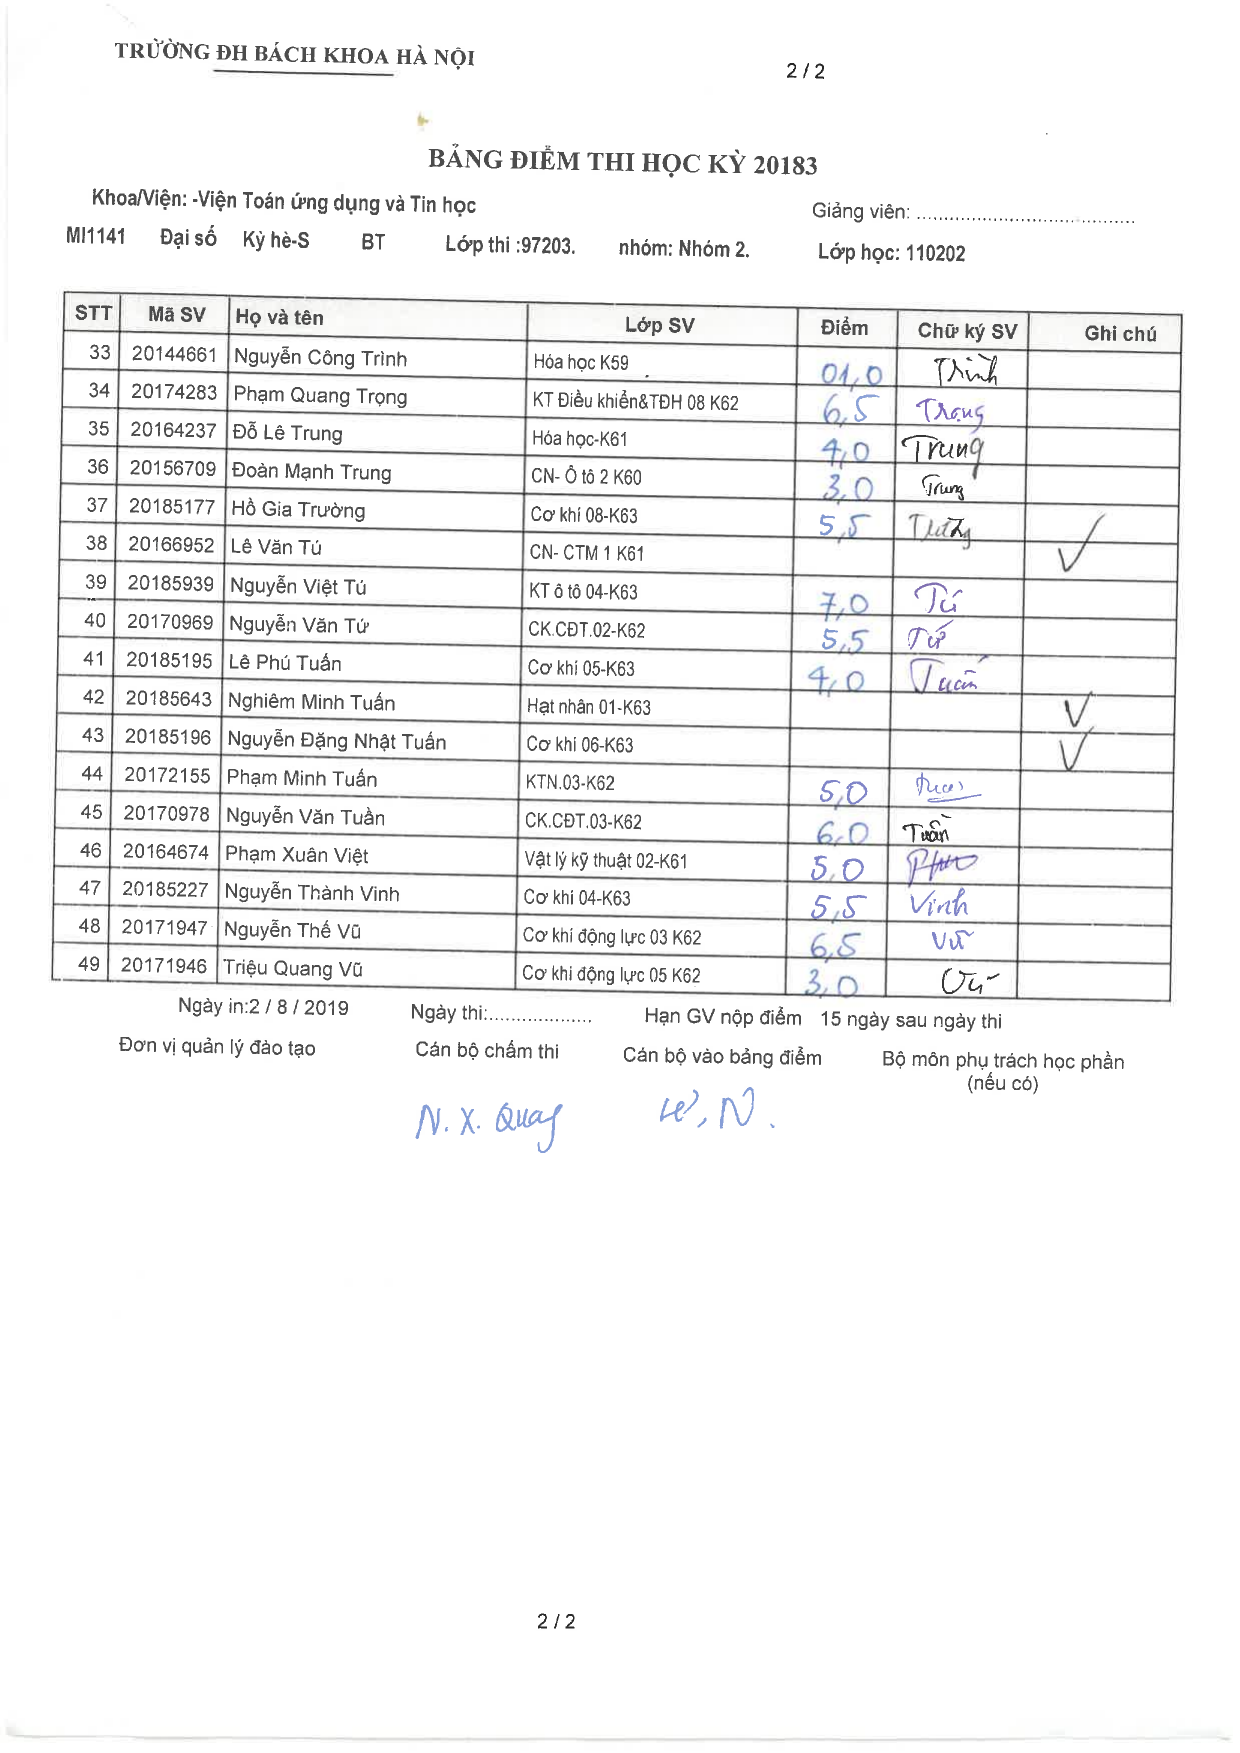 TRƯỜNG ĐH BÁCH KHOA HÀ NỘI
2 / 2
BẢNG ĐIỂM THI HỌC KỲ 20183
Khoa/Viện: -Viện Toán ứng dụng và Tin học Giảng viên: ........................................
MI1141 Đại số Kỳ hè-S BT Lớp thi :97203. nhóm: Nhóm 2. Lớp học: 110202
STT Mã SV Họ và tên Lớp SV Điểm Chữ ký SV Ghi chú
33 20144661 Nguyễn Công Trình Hóa học K59 01,0 Trình
34 20174283 Phạm Quang Trọng KT Điều khiển&TĐH 08 K62 6,5 Trọng
35 20164237 Đỗ Lê Trung Hóa học-K61 4,0 Trung
36 20156709 Đoàn Mạnh Trung CN- Ô tô 2 K60 3,0 Trung
37 20185177 Hồ Gia Trường Cơ khí 08-K63 5,5
38 20166952 Lê Văn Tú CN- CTM 1 K61 ✓
39 20185939 Nguyễn Việt Tú KT ô tô 04-K63 7,0 Tú
40 20170969 Nguyễn Văn Tứ CK.CĐT.02-K62 5,5 Tứ
41 20185195 Lê Phú Tuấn Cơ khí 05-K63 4,0 Tuấn
42 20185643 Nghiêm Minh Tuấn Hạt nhân 01-K63 ✓
43 20185196 Nguyễn Đặng Nhật Tuấn Cơ khí 06-K63 ✓
44 20172155 Phạm Minh Tuấn KTN.03-K62 5,0
45 20170978 Nguyễn Văn Tuần CK.CĐT.03-K62 6,0 Tuần
46 20164674 Phạm Xuân Việt Vật lý kỹ thuật 02-K61 5,0
47 20185227 Nguyễn Thành Vinh Cơ khí 04-K63 5,5 Vinh
48 20171947 Nguyễn Thế Vũ Cơ khí động lực 03 K62 6,5 Vũ
49 20171946 Triệu Quang Vũ Cơ khí động lực 05 K62 3,0 Vũ
Ngày in:2 / 8 / 2019 Ngày thi:................... Hạn GV nộp điểm 15 ngày sau ngày thi
Đơn vị quản lý đào tạo Cán bộ chấm thi Cán bộ vào bảng điểm Bộ môn phụ trách học phần
(nếu có)
N. X. Quay
2 / 2